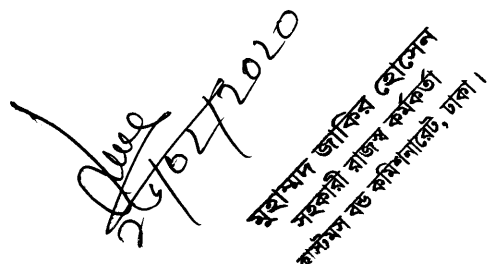 ২৫/০২/২০২০
মুহাম্মদ জাকির হোসেন
সহকারী রাজস্ব কর্মকর্তা
কাস্টমস বন্ড কমিশনারেট, ঢাকা।